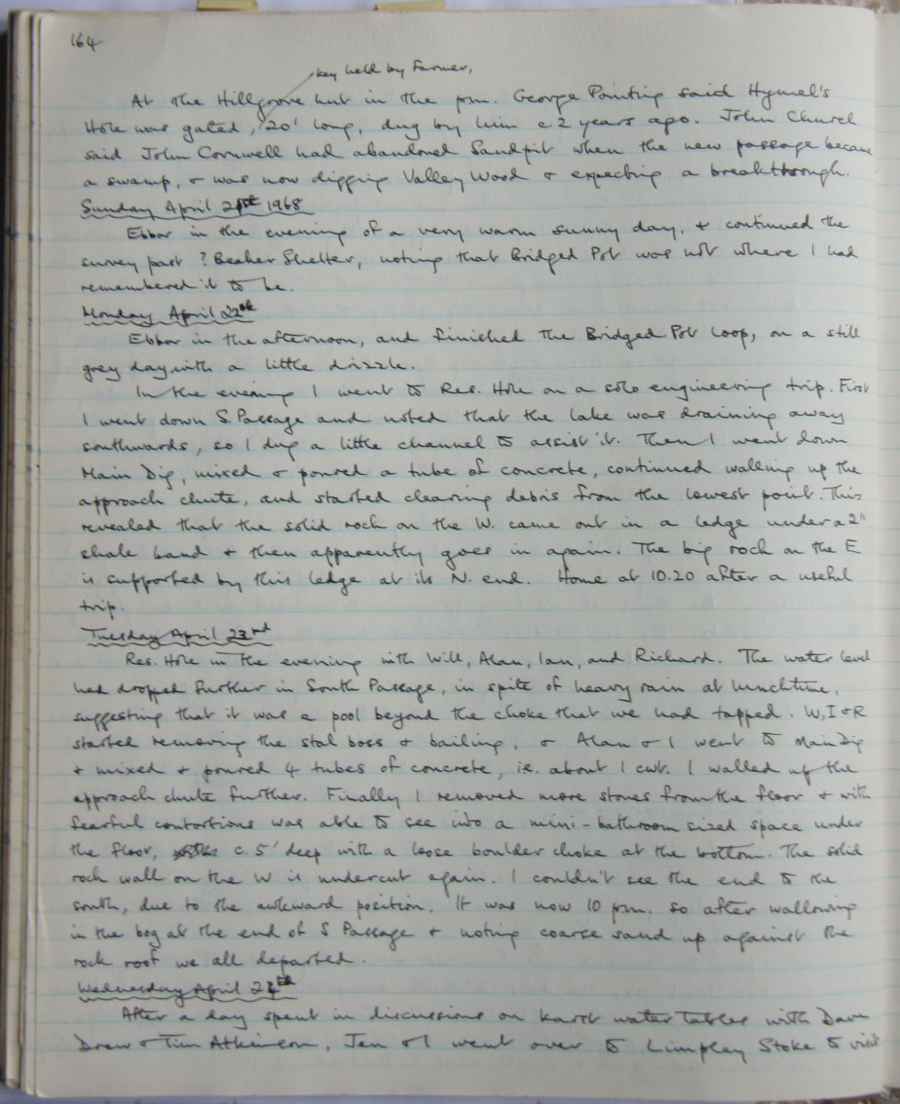 164
key held by Farmer,
At the Hillgrove hut in the p.m. George Pointing said Hymel's
Hole was gated, 20' long, dug by him c. 2 years ago. John Church
said John Cornwell had abandoned Sandpit when the new passage became
a swamp, & was now digging Valley Wood & expecting a breakthrough.
Sunday April 21st 1968
Ebbor in the evening of a very warm sunny day, & continued the
survey past ? Beaker Shelter, noting that Bridged Pot was not where I had
remembered it to be.
Monday April 22nd
Ebbor in the afternoon, and finished the Bridged Pot loop, on a still
grey day with a little drizzle.
In the evening I went to Res. Hole on a solo engineering trip. First
I went down S. Passage and noted that the lake was draining away
southwards, so I dug a little channel to assist it. Then I went down
Main Dig, mixed & poured a tube of concrete, continued walling up the
approach chute, and started clearing debris from the lowest point. This
revealed that the solid rock on the W. came out in a ledge under a 2"
shale band & then apparently goes in again. The big rock on the E
is supported by this ledge at its N. end. Home at 10.20 after a useful
trip.
Tuesday April 23rd
Res. Hole in the evening with Will, Alan, Ian, and Richard. The water level
had dropped further in South Passage, in spite of heavy rain at lunchtime,
suggesting that it was a pool beyond the choke that we had tapped. W, I & R
started removing the stal boss & bailing, & Alan & I went to Main Dig
& mixed & poured 4 tubes of concrete, i.e. about 1 cwt. I walled up the
approach chute further. Finally I removed more stones from the floor & with
fearful contortions was able to see into a mini-bathroom sized space under
the floor, c. 5' deep with a loose boulder choke at the bottom. The solid
rock wall on the W is undercut again. I couldn't see the end to the
south, due to the awkward position. It was now 10 p.m. so after wallowing
in the bog at the end of S Passage & noting coarse sand up against the
rock roof we all departed.
Wednesday April 24th
After a day spent in discussions on karst water tables with Dave
Drew & Tim Atkinson, Jen & I went over to Limpley Stoke to visit